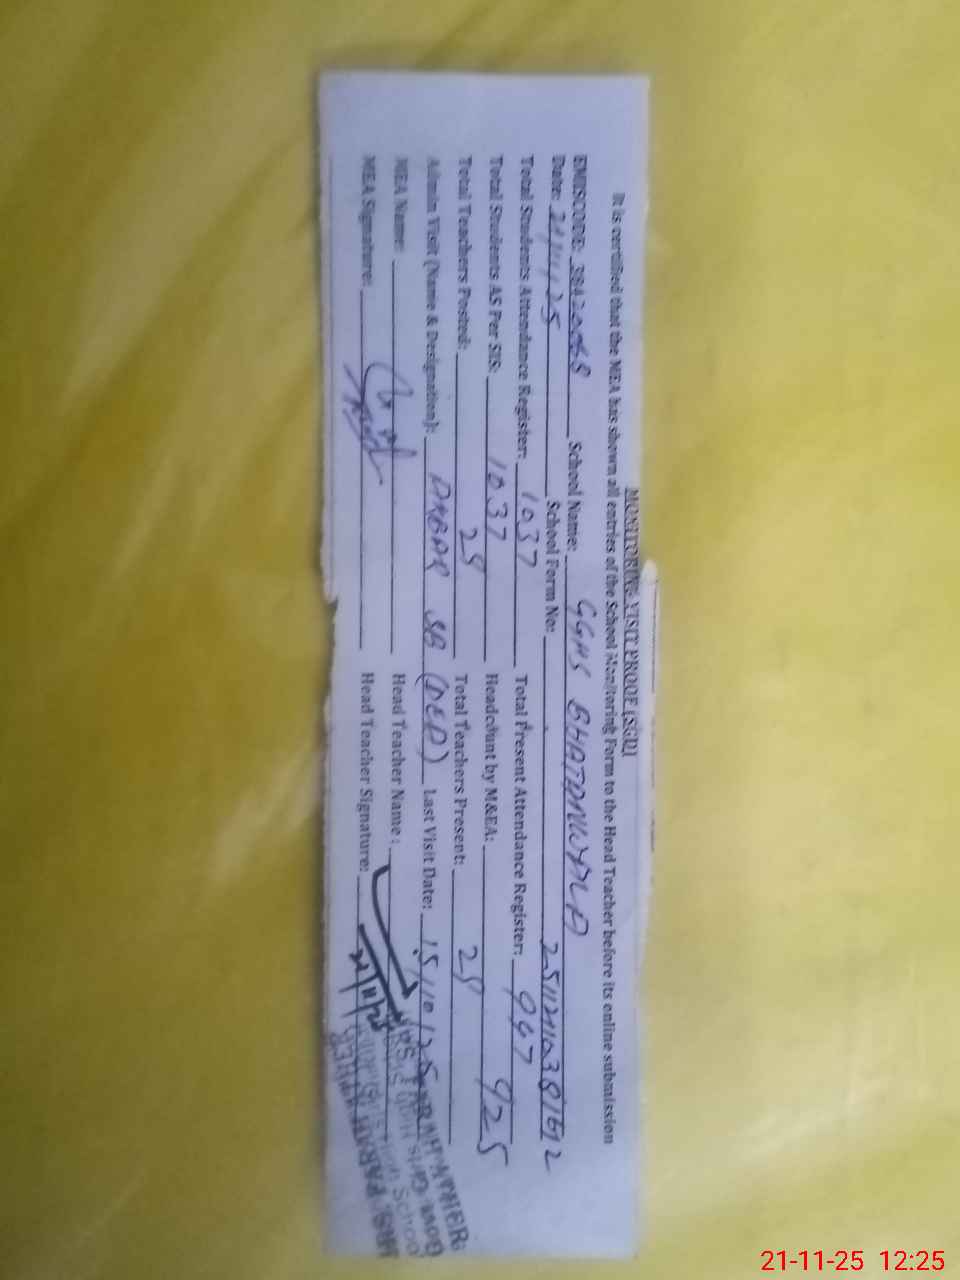 MONITORING VISIT PROOF (SGD)
It is certified that the MEA has shown all entries of the School Monitoring Form to the Head Teacher before its online submission
EMISCODE: School Name: GGHS BHATANWALA
Date: 21/11/25 School Form No:
Total Students Attendance Register: 1037 Total Present Attendance Register: 947
Total Students AS Per SIS: 1037 Headcount by M&EA: 925
Total Teachers Posted: 29 Total Teachers Present: 29
Admin Visit (Name & Designation): AKBAR Last Visit Date: 15/10/25
MEA Name: Head Teacher Name:
MEA Signature: Head Teacher Signature:
21-11-25 12:25